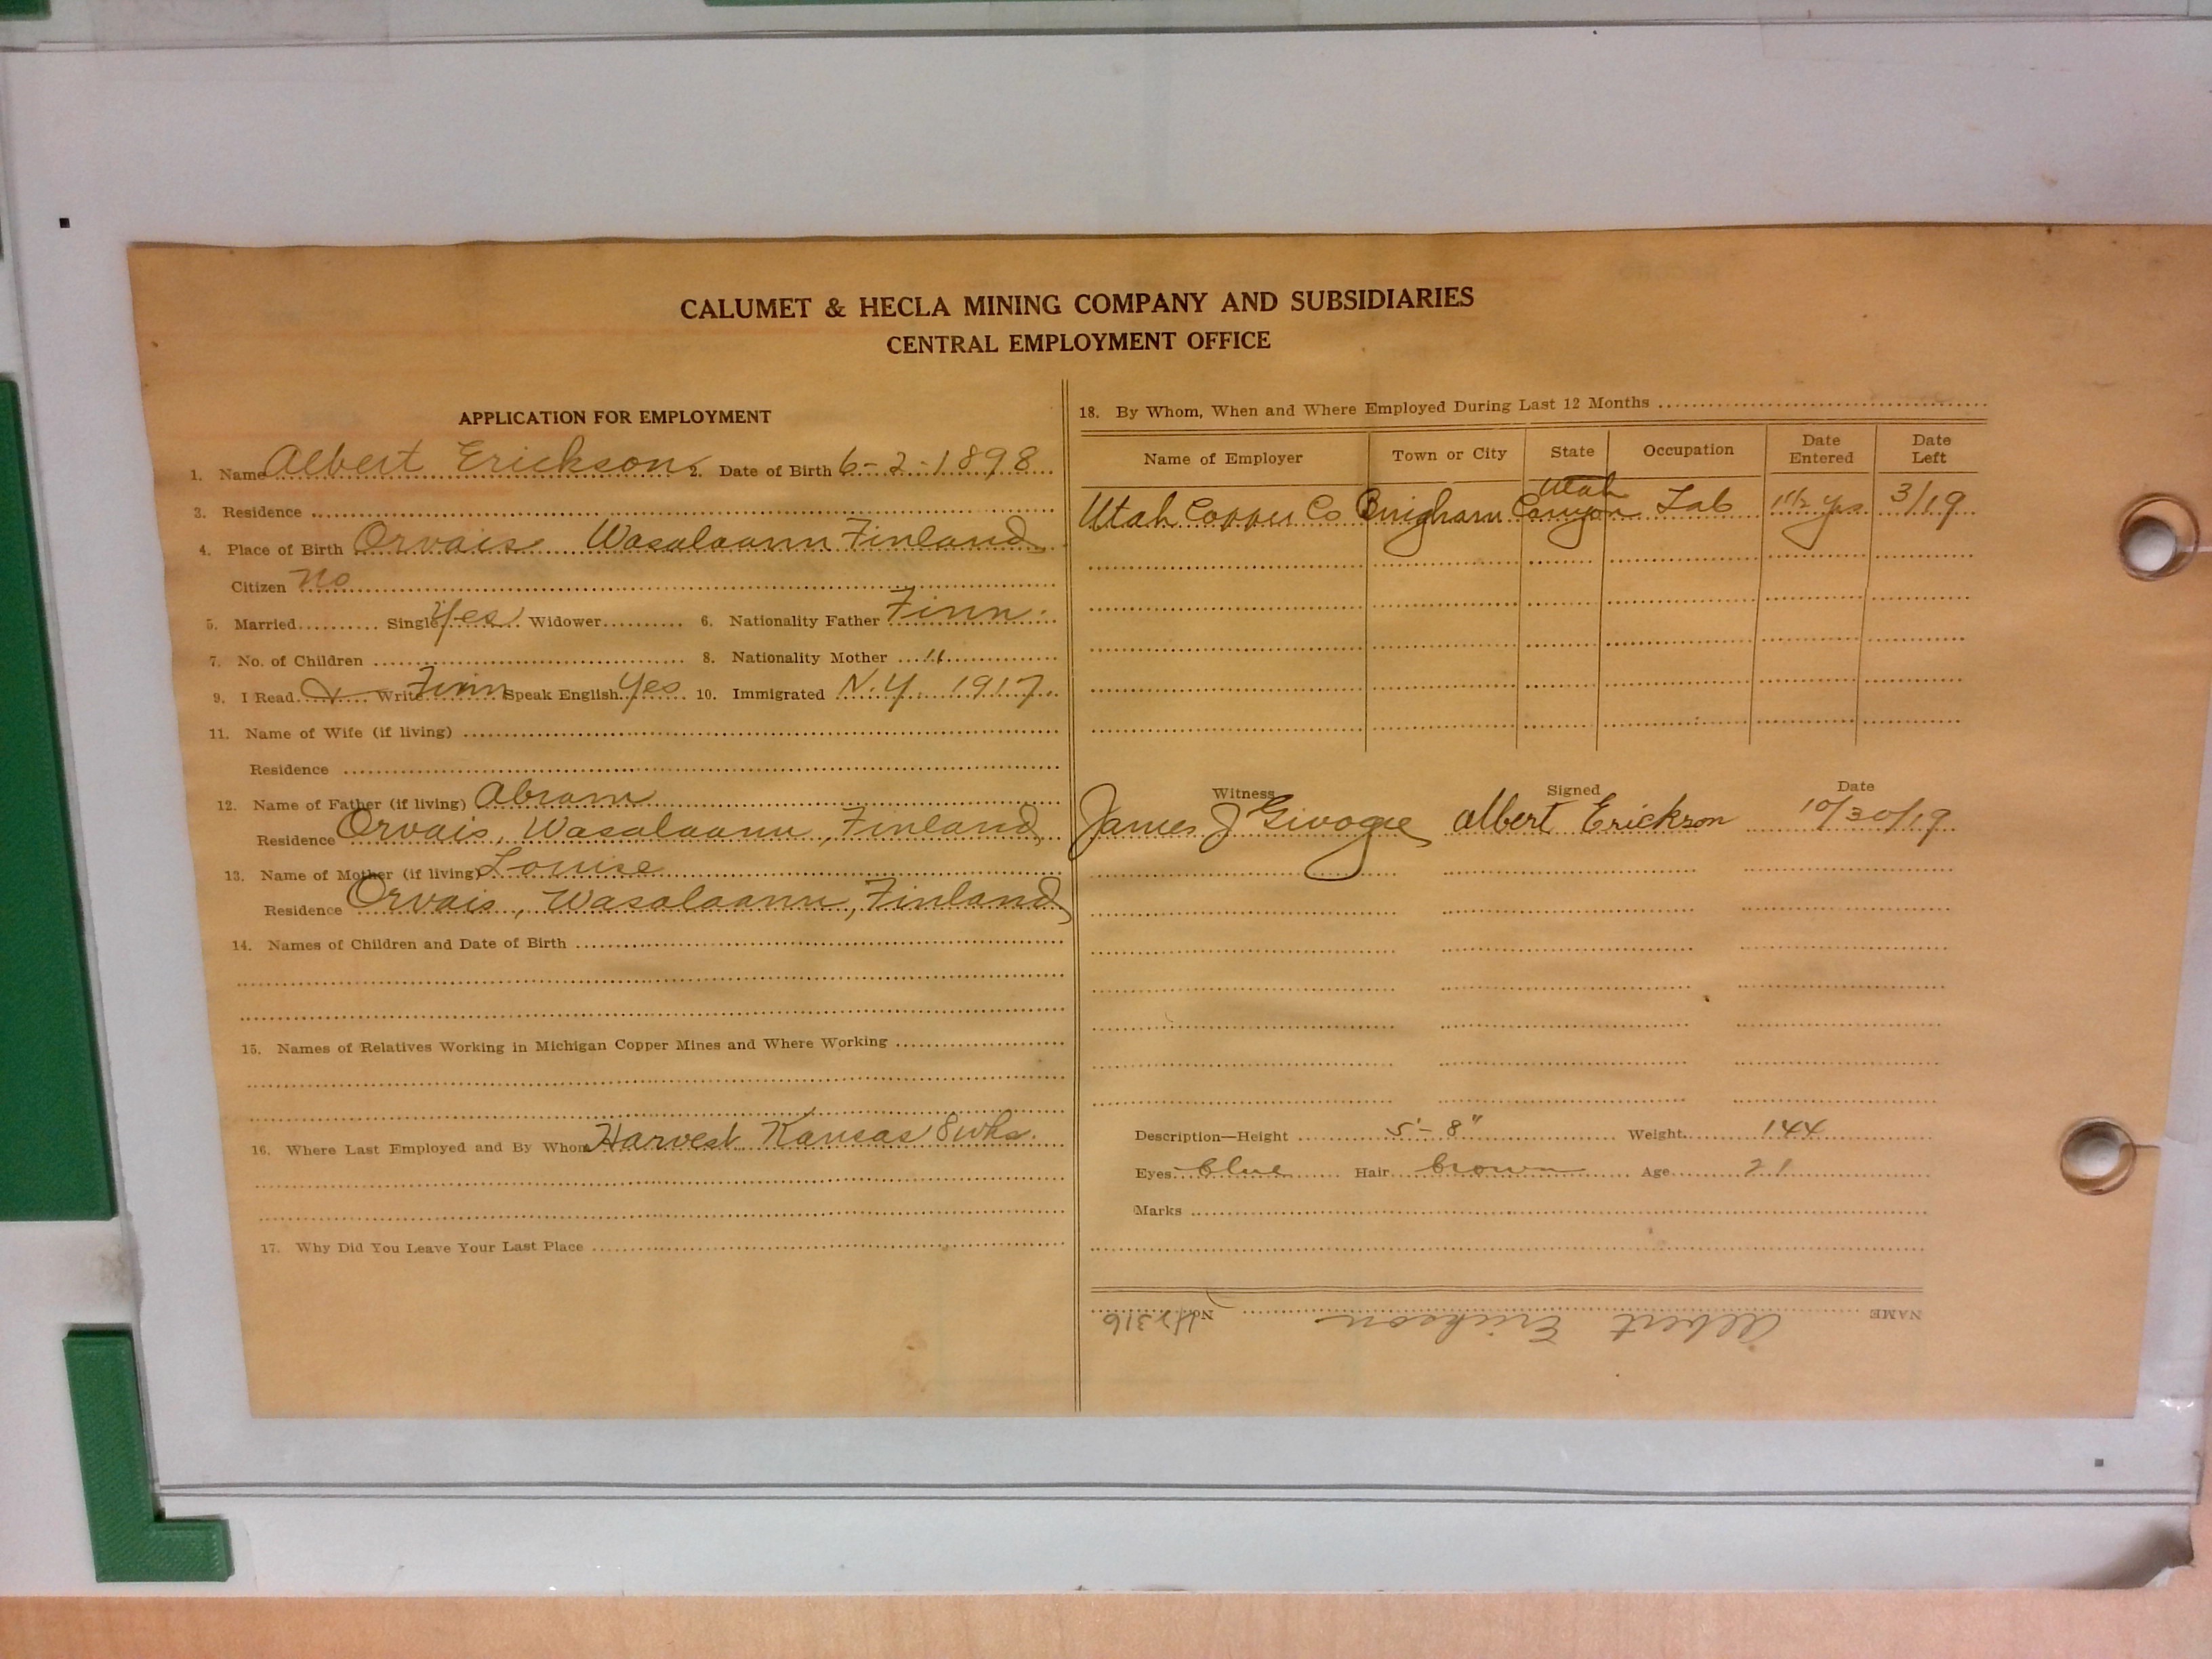 CALUMET & HECLA MINING COMPANY AND SUBSIDIARIES
CENTRAL EMPLOYMENT OFFICE
APPLICATION FOR EMPLOYMENT
1. Name Albert Erickson 2. Date of Birth 6-2-1898
3. Residence
4. Place of Birth Orvais Wasalaann Finland
Citizen No
5. Married Single Yes Widower 6. Nationality Father Finn
7. No. of Children 8. Nationality Mother "
9. I Read Write Finn Speak English Yes 10. Immigrated N.Y. 1917
11. Name of Wife (if living)
Residence
12. Name of Father (if living) Abram
Residence Orvais, Wasalaann, Finland
13. Name of Mother (if living) Louise
Residence Orvais, Wasalaann, Finland
14. Names of Children and Date of Birth
15. Names of Relatives Working in Michigan Copper Mines and Where Working
16. Where Last Employed and By Whom Harvest Kansas 8 wks.
17. Why Did You Leave Your Last Place
18. By Whom, When and Where Employed During Last 12 Months
Name of Employer Town or City State Occupation Date Entered Date Left
Utah Copper Co Bingham Canyon Utah Lab 1½ yrs 3/19
Witness Signed Date
James J Givogue Albert Erickson 10/30/19
Description—Height 5'-8" Weight 144
Eyes blue Hair brown Age 21
Marks
NAME Albert Erickson No.